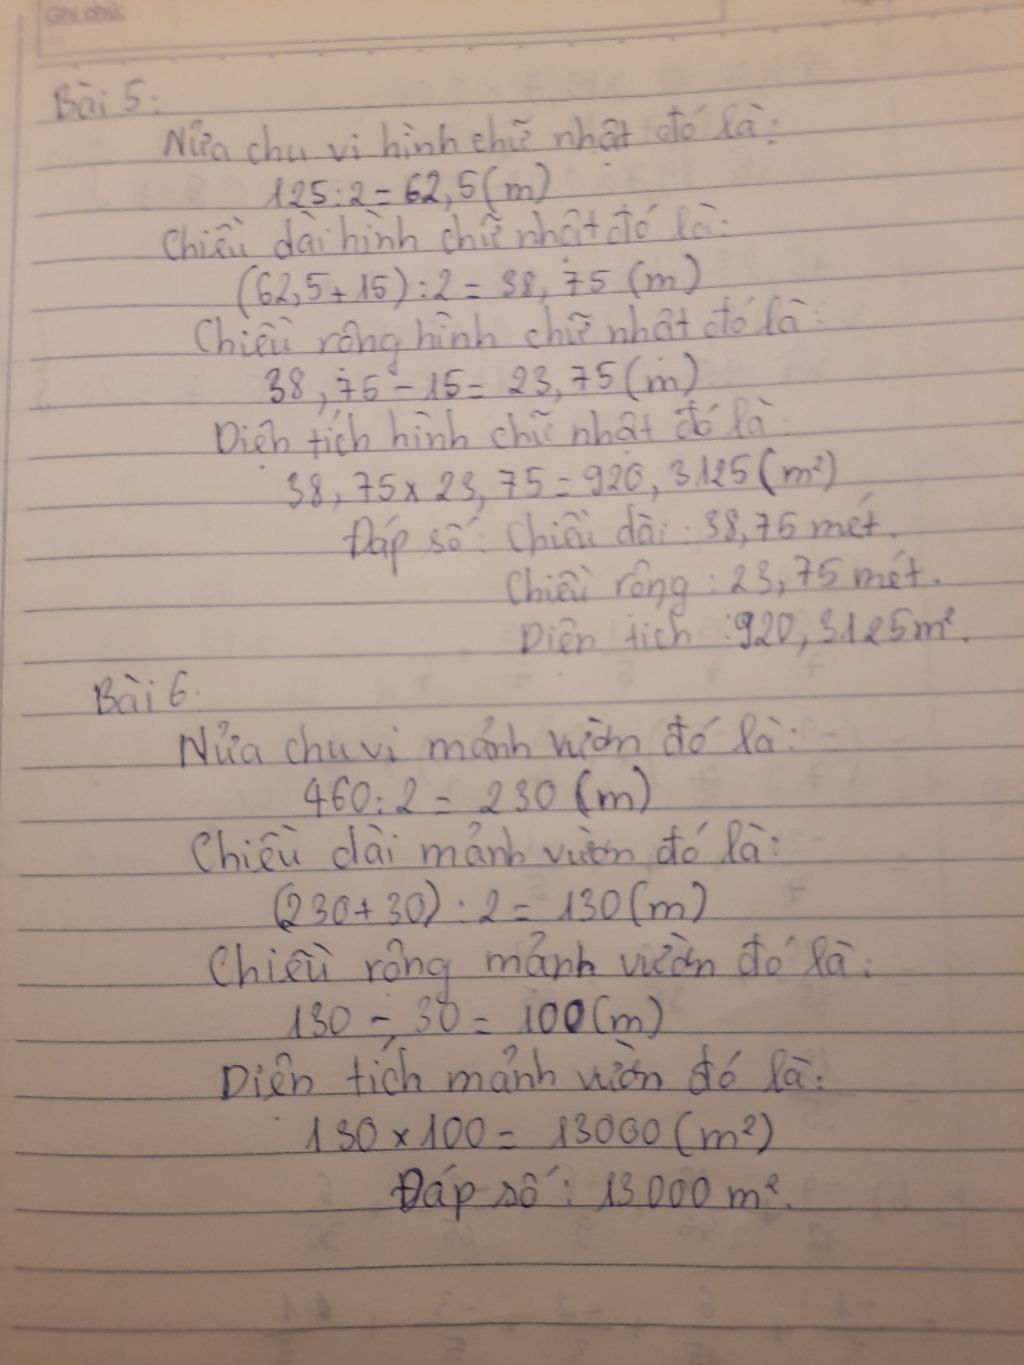 Ghi chú:
Bài 5:
Nửa chu vi hình chữ nhật đó là:
125:2=62,5(m)
Chiều dài hình chữ nhật đó là:
(62,5+15):2=38,75(m)
Chiều rộng hình chữ nhật đó là:
38,75-15=23,75(m)
Diện tích hình chữ nhật đó là:
38,75x23,75=920,3125(m²)
Đáp số: Chiều dài: 38,75 mét.
Chiều rộng: 23,75 mét.
Diện tích: 920,3125m².
Bài 6:
Nửa chu vi mảnh vườn đó là:
460:2=230(m)
Chiều dài mảnh vườn đó là:
(230+30):2=130(m)
Chiều rộng mảnh vườn đó là:
130-30=100(m)
Diện tích mảnh vườn đó là:
130x100=13000(m²)
Đáp số: 13000m².